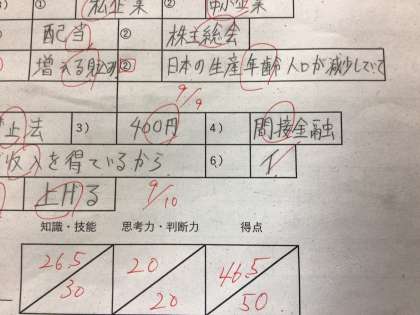 ① 私企業 ② 中小企業
配当 ② 株主総会
増える見込み ② 日本の生産年齢人口が減少していて
9/9
止法 3) 400円 4) 間接金融
収入を得ているから 6) イ
上昇る 9/10
知識・技能 思考力・判断力 得点
26.5/30 20/20 46.5/50